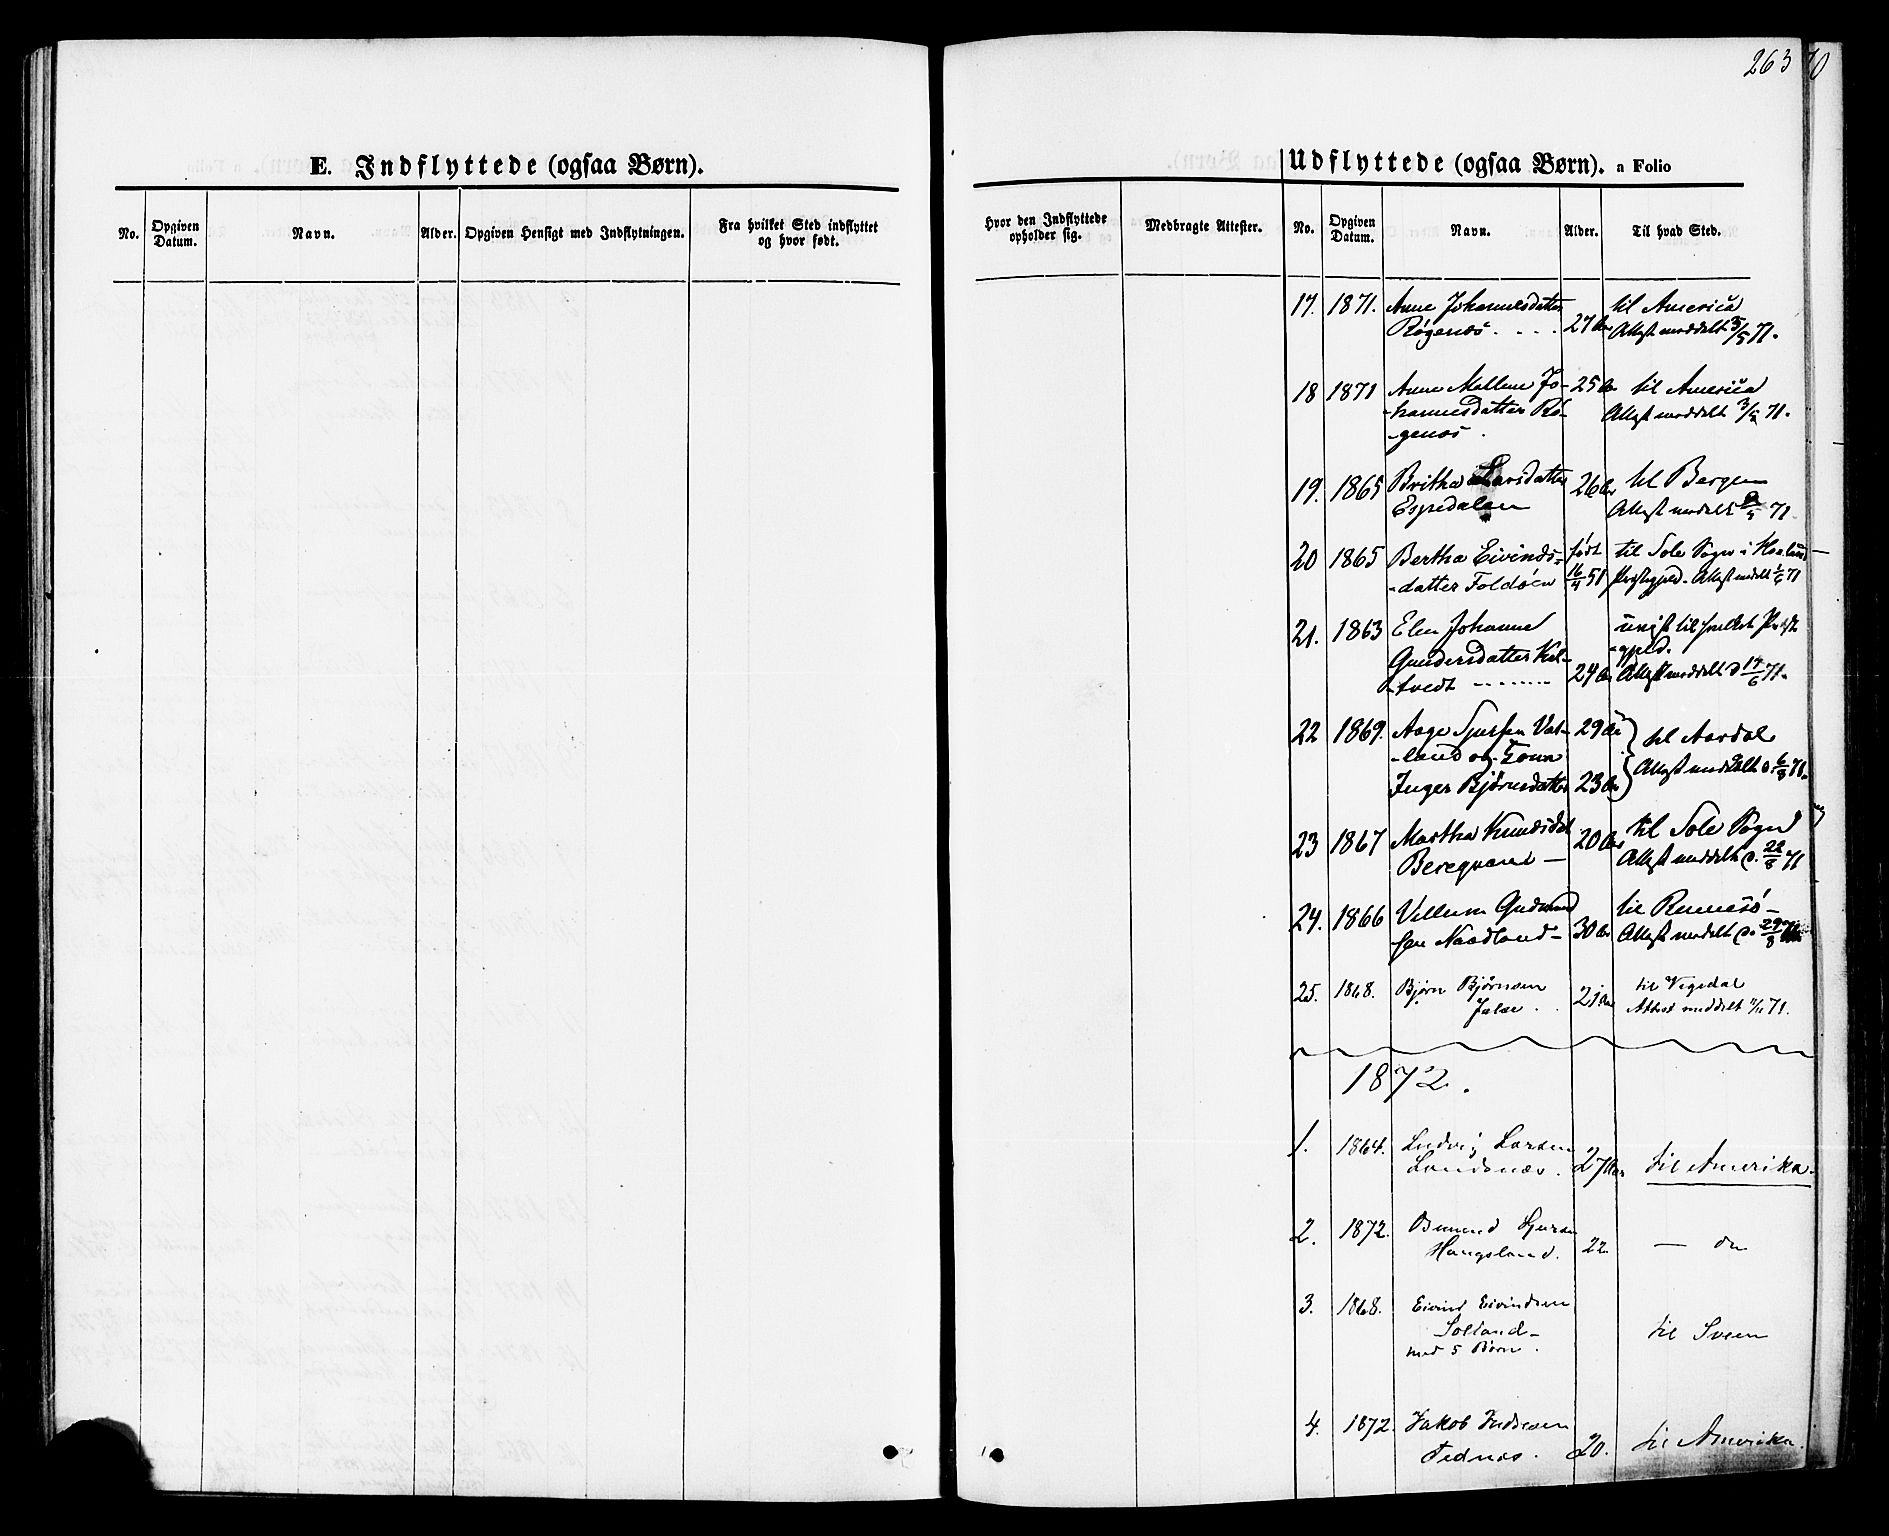 263
70
E. Indflyttede (ogsaa Børn).
No.
Opgiven Datum.
Navn.
Alder.
Opgiven Hensigt med Indflytningen.
Fra hvilket Sted indflyttet og hvor født.
Hvor den Indflyttede opholder sig.
Medbragte Attester.
Udflyttede (ogsaa Børn). a Folio
No.
Opgiven Datum.
Navn.
Alder.
Til hvad Sted.
17. 1871. Anne Johannesdatter til America
Røgenes. . . . 27 Aar Attest meddelt 3/5 71.
18 1871 Anne Mallene Jo- 25 Aar til America
-hannesdatter Rø- Attest meddelt 3/5 71.
-genes.
19. 1865 Britha Larsdatter 26 Aar til Bergen
Espedalen Attest meddelt 71.
20 1865 Bertha Eivinds- født til Sole Sogn i
-datter Foldøen 16/4 51 Attest meddelt 71
21. 1863 Elen Johanne til Præste
Gundersdatter Kal- -gjeld.
-tvedt 24 Aar Attest meddelt d. 14/6 71.
22 1869. Aage Sjursen Vat- 29 Aar til Aardal
-land og Kone Attest meddelt d. 6/8 71.
Inger Bjørnsdatter 23 Aar
23 1867 Martha Knudsdat 20 Aar til Sole Sogn
Beregvam - Attest meddelt d. 22/8 71
24. 1866 Villum Gudmund til Rennesø -
-sen Nordland - 30 Aar Attest meddelt d. 29/8 71.
25. 1868. Bjørn Bjørnsen 21 Aar til Vigedal
Attest meddelt 71.
1872.
1. 1864. Ludvig Larsen
Landsnes. 27 Aar til Amerika.
2. 1872. Sjursen
Haugsland. 22. — do
3. 1868. Eivind Eivindsen
Solland - til Sveen
med 5 Børn.
4. 1872. Jakob
Tednes. 20. til Amerika.